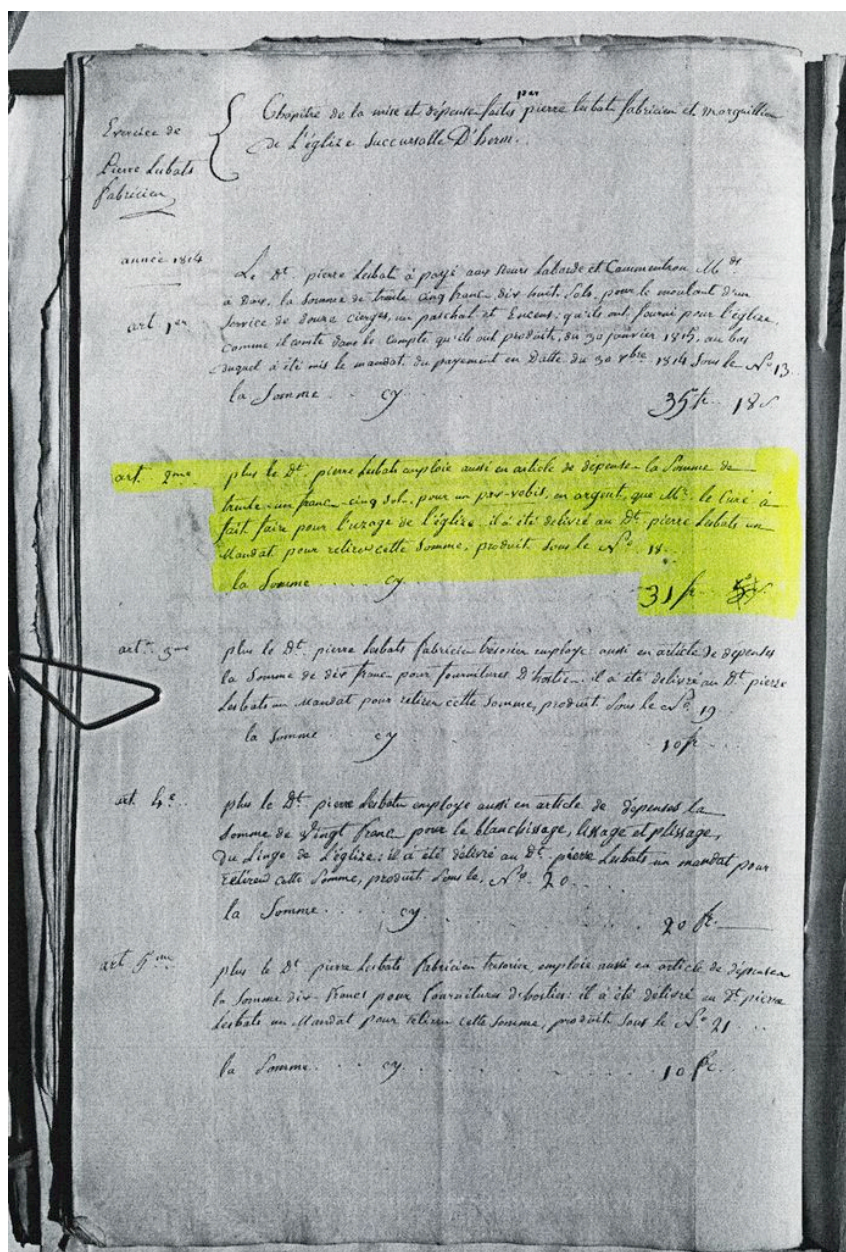 Exercice de
Pierre Lesbats
fabricien
Chapitre de la mise et dépense faites par pierre lesbats fabricien et marguillier
de L'église Succursalle D'herm.
année 1814
art 1er
Le Dt pierre Lesbats à payé aux sieurs Laborde et Mds
à Dax, la somme de trente cinq franc dix huit sols, pour le montant d'un
service de Douze cierges, un paschal et Encens; qu'ils ont fourni pour l'église,
comme il conste dans le Compte qu'ils ont produit, du 30 janvier 1815, au bas
duquel à été mis le mandat du payement en Datte du 30 xbre 1814 Sous le No 13
la Somme . . cy 35 fr. 18 s
art. 2me plus le Dt. pierre Lesbats emploie aussi en article de dépense la Somme de
trente-un franc cinq sols, pour un pax-vobis, en argent, que Mr. le Curé à
fait faire pour l'uzage de l'église. il à été délivré au Dt. pierre Lesbats un
Mandat pour retirer cette Somme, produit sous le No. 18..
la Somme . . . . cy. 31 fr 5 s
art. 3me plus le Dt. pierre Lesbats fabricien trésorier employe aussi en article de dépenses
la Somme de dix franc pour fournitures D'hosties. il à été délivré au Dt. pierre
Lesbats un Mandat pour retirer cette Somme, produit Sous le No. 19
la Somme . . cy . . 10 fr
art. 4e. plus le Dt. pierre Lesbats employe aussi en article de dépenses la
Somme de Vingt franc pour le blanchissage, lissage et plissage,
Du Linge de L'église; il à été délivré au Dt. pierre Lesbats un mandat pour
retirer cette Somme, produit Sous le, No. 20 . . . .
la Somme . . . . cy. . . . 20 fr.
art 5me plus le Dt pierre Lesbats fabricien trésorier, emploie aussi en article de dépenses
la Somme dix francs pour fournitures d'hosties: il à été délivré au Dt pierre
Lesbats un Mandat pour retirer cette Somme, produit sous le No 21 . .
la Somme . . . cy. . . . 10 fr.